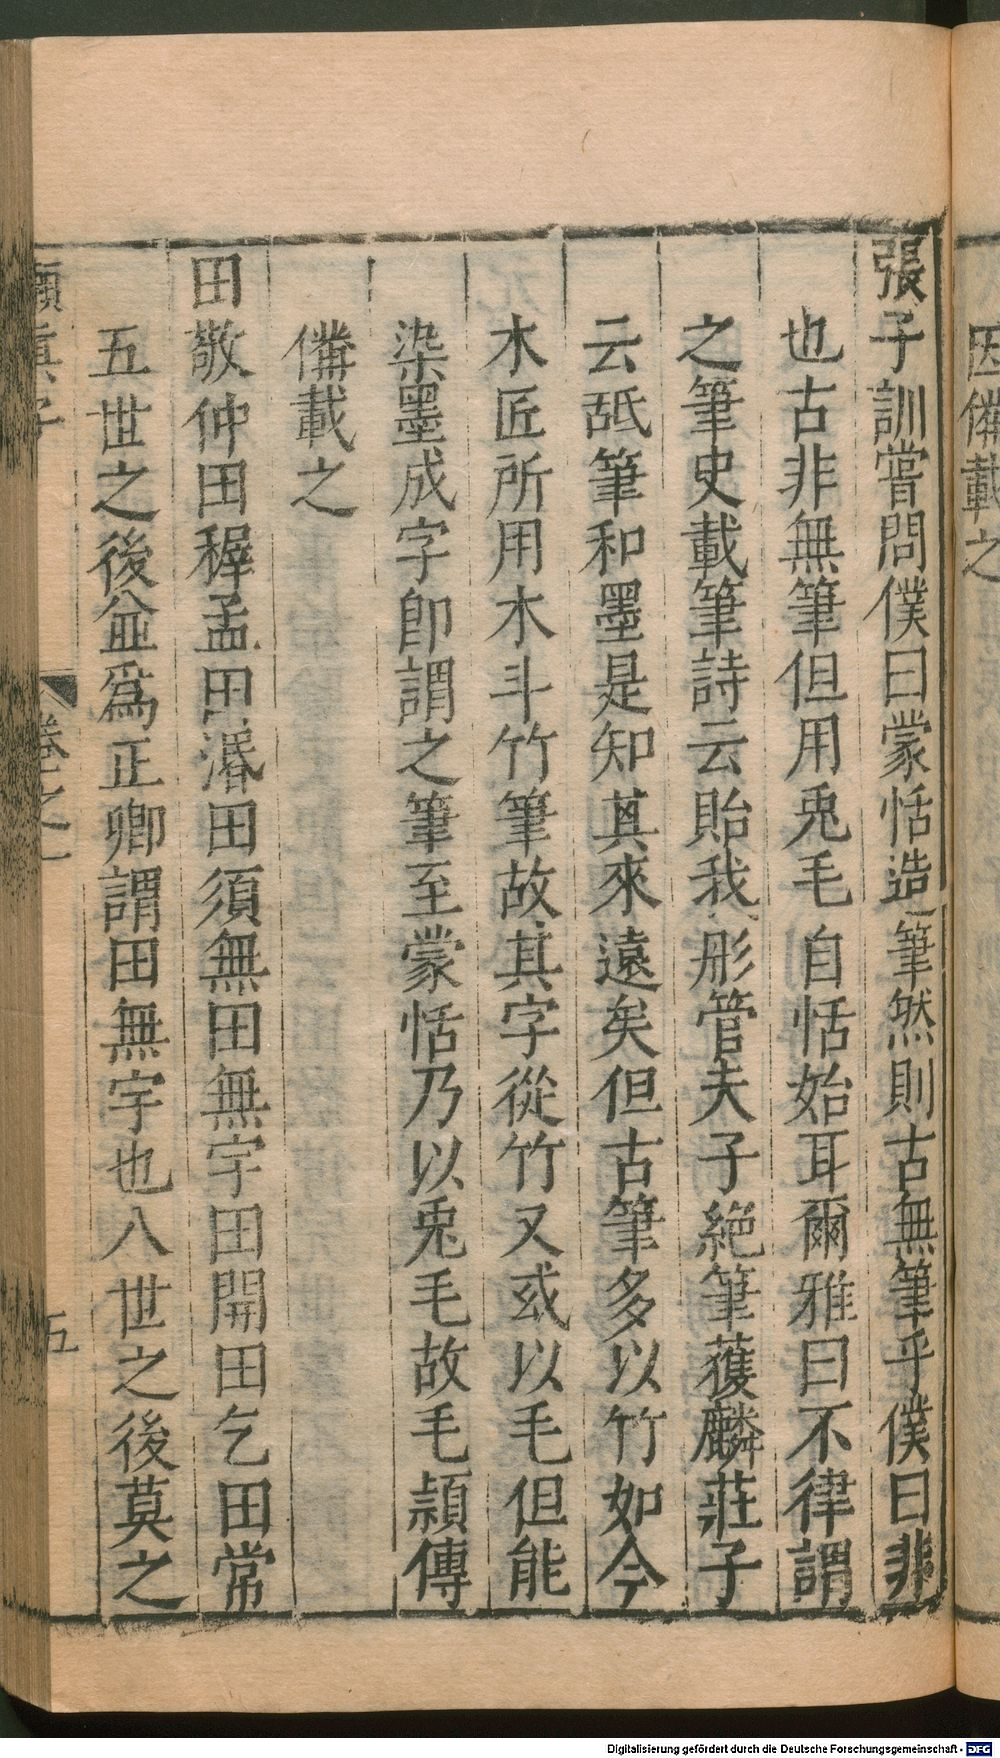 因俻載之
張子訓嘗問僕曰蒙恬造筆然則古無筆乎僕曰非
也古非無筆但用兎毛自恬始耳爾雅曰不律謂
之筆史載筆詩云貽我彤管夫子絕筆獲麟莊子
云舐筆和墨是知其來遠矣但古筆多以竹如今
木匠所用木斗竹筆故其字從竹又或以毛但能
染墨成字即謂之筆至蒙恬乃以兎毛故毛頴傳
俻載之
田敬仲田穉孟田湣田須無田無宇田開田乞田常
五世之後並爲正卿謂田無宇也八世之後莫之
嬾真子
卷之一
五
Digitalisierung gefördert durch die Deutsche Forschungsgemeinschaft - DFG